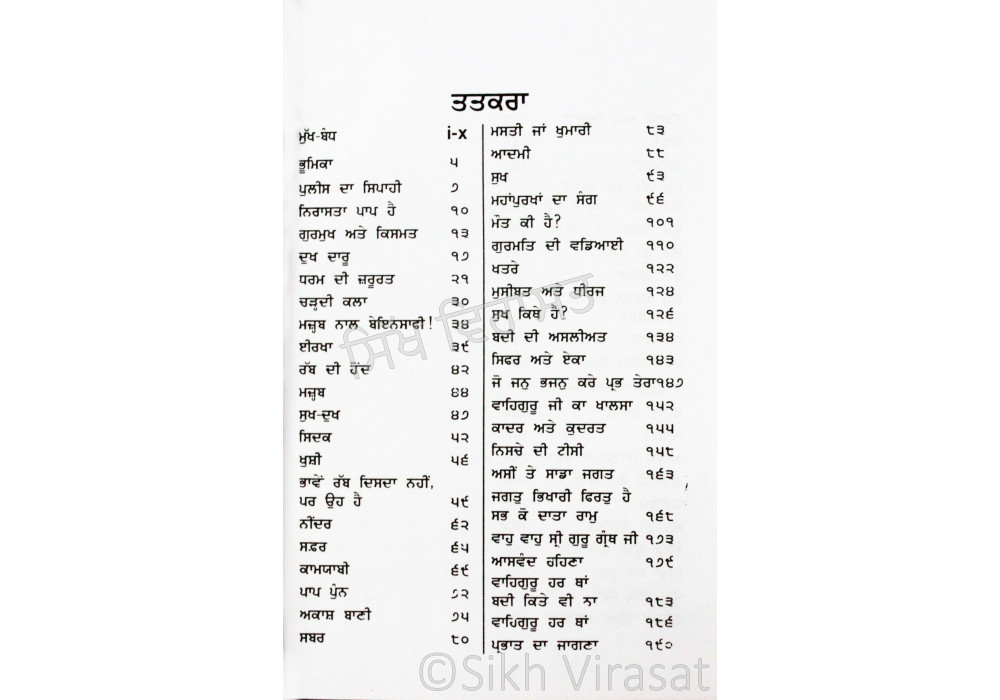 ਤਤਕਰਾ
ਮੁੱਖ-ਬੰਧ i-x
ਭੂਮਿਕਾ ੫
ਪੁਲੀਸ ਦਾ ਸਿਪਾਹੀ ੭
ਨਿਰਾਸਤਾ ਪਾਪ ਹੈ ੧੦
ਗੁਰਮੁਖ ਅਤੇ ਕਿਸਮਤ ੧੩
ਦੁਖ ਦਾਰੂ ੧੭
ਧਰਮ ਦੀ ਜ਼ਰੂਰਤ ੨੧
ਚੜ੍ਹਦੀ ਕਲਾ ੩੦
ਮਜ਼੍ਹਬ ਨਾਲ ਬੇਇਨਸਾਫੀ! ੩੪
ਈਰਖਾ ੩੯
ਰੱਬ ਦੀ ਹੋਂਦ ੪੨
ਮਜ਼੍ਹਬ ੪੪
ਸੁਖ-ਦੁਖ ੪੭
ਸਿਦਕ ੫੨
ਖੁਸ਼ੀ ੫੬
ਭਾਵੇਂ ਰੱਬ ਦਿਸਦਾ ਨਹੀਂ,
ਪਰ ਉਹ ਹੈ ੫੯
ਨੀਂਦਰ ੬੨
ਸਫ਼ਰ ੬੫
ਕਾਮਯਾਬੀ ੬੯
ਪਾਪ ਪੁੰਨ ੭੨
ਅਕਾਸ਼ ਬਾਣੀ ੭੫
ਸਬਰ ੮੦
ਮਸਤੀ ਜਾਂ ਖੁਮਾਰੀ ੮੩
ਆਦਮੀ ੮੮
ਸੁਖ ੯੩
ਮਹਾਂਪੁਰਖਾਂ ਦਾ ਸੰਗ ੯੬
ਮੌਤ ਕੀ ਹੈ? ੧੦੧
ਗੁਰਮਤਿ ਦੀ ਵਡਿਆਈ ੧੧੦
ਖਤਰੇ ੧੨੨
ਮੁਸੀਬਤ ਅਤੇ ਧੀਰਜ ੧੨੪
ਸੁਖ ਕਿਥੇ ਹੈ? ੧੨੬
ਬਦੀ ਦੀ ਅਸਲੀਅਤ ੧੩੪
ਸਿਫਰ ਅਤੇ ਏਕਾ ੧੪੩
ਜੋ ਜਨੁ ਭਜਨੁ ਕਰੇ ਪ੍ਰਭ ਤੇਰਾ੧੪੭
ਵਾਹਿਗੁਰੂ ਜੀ ਕਾ ਖਾਲਸਾ ੧੫੨
ਕਾਦਰ ਅਤੇ ਕੁਦਰਤ ੧੫੫
ਨਿਸਚੇ ਦੀ ਟੀਸੀ ੧੫੮
ਅਸੀਂ ਤੇ ਸਾਡਾ ਜਗਤ ੧੬੩
ਜਗਤੁ ਭਿਖਾਰੀ ਫਿਰਤੁ ਹੈ
ਸਭ ਕੋ ਦਾਤਾ ਰਾਮੁ ੧੬੮
ਵਾਹੁ ਵਾਹੁ ਸ੍ਰੀ ਗੁਰੂ ਗ੍ਰੰਥ ਜੀ ੧੭੩
ਆਸਵੰਦ ਰਹਿਣਾ ੧੭੯
ਵਾਹਿਗੁਰੂ ਹਰ ਥਾਂ
ਬਦੀ ਕਿਤੇ ਵੀ ਨਾ ੧੮੩
ਵਾਹਿਗੁਰੂ ਹਰ ਥਾਂ ੧੮੬
ਪ੍ਰਭਾਤ ਦਾ ਜਾਗਣਾ ੧੯੦
ਸਿੱਖ ਵਿਰਾਸਤ
©Sikh Virasat